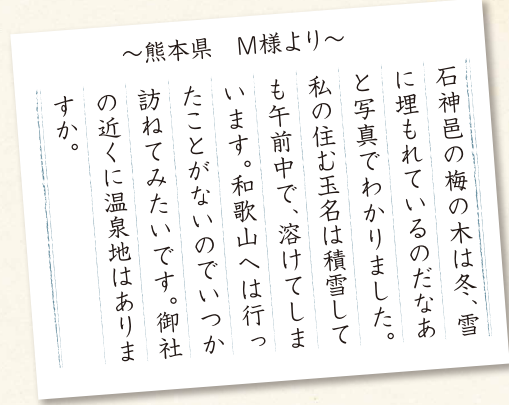 ～熊本県　M様より～
石神邑の梅の木は冬、雪
に埋もれているのだなあ
と写真でわかりました。
私の住む玉名は積雪して
も午前中で、溶けてしま
います。和歌山へは行っ
たことがないのでいつか
訪ねてみたいです。御社
の近くに温泉地はありま
すか。